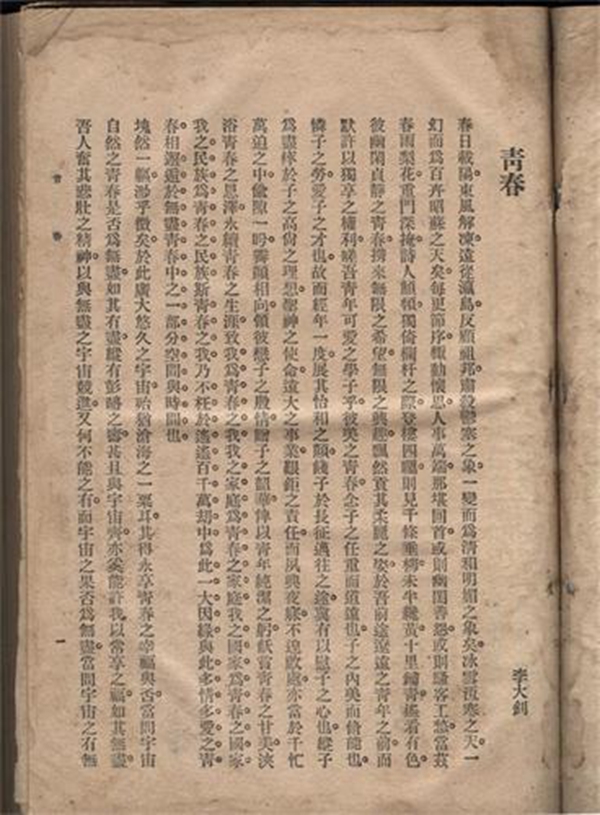 青春
李大釗
春日載陽東風解凍遠從瀛島反顧祖邦肅殺鬱寒之象一變而為清和明媚之象矣冰雪沍寒之天一
幻而為百卉昭蘇之天矣每更節序輒動懷思人事萬端那堪回首或則幽閨善怨或則騷客工愁當茲
春雨梨花重門深掩詩人顦顇獨倚欄杆之際登樓四矚則見千條垂柳未半纔黃十里鋪青遙看有色
彼幽閑貞靜之青春攜來無限之希望無限之興趣飄然貢其柔麗之姿於吾前途遼遠之青年之前而
默許以獨享之權利嗟吾青年可愛之學子乎彼美之青春念子之任重而道遠也子之內美而脩能也
憐子之勞愛子之才也故而經年一度展其怡和之顏餞子於長征邁往之途冀有以慰子之心也縱子
為盡瘁於子之高尚之理想聖神之使命遠大之事業艱鉅之責任而夙興夜寐不遑啟處亦當於千忙
萬迫之中偷隙一盼霽顏相向領彼戀子之殷情贈子之韶華俾以青年純潔之躬飫嘗青春之甘美浹
浴青春之恩澤永續青春之生涯致我為青春之我我之家庭為青春之家庭我之國家為青春之國家
我之民族為青春之民族斯青春之我乃不枉於遙遙百千萬劫中為此一大因緣與此多情多愛之青
春相邂逅於無盡青春中之一部分空間與時間也
塊然一軀渺乎微矣於此廣大悠久之宇宙殆猶滄海之一粟耳其得永享青春之幸福與否當問宇宙
自然之青春是否為無盡如其有盡縱有彭聃之壽甚且與宇宙齊亦奚能許我以常享之福如其無盡
吾人奮其悲壯之精神以與無盡之宇宙競進又何不能之有而宇宙之果否為無盡當問宇宙之有無
青春
一